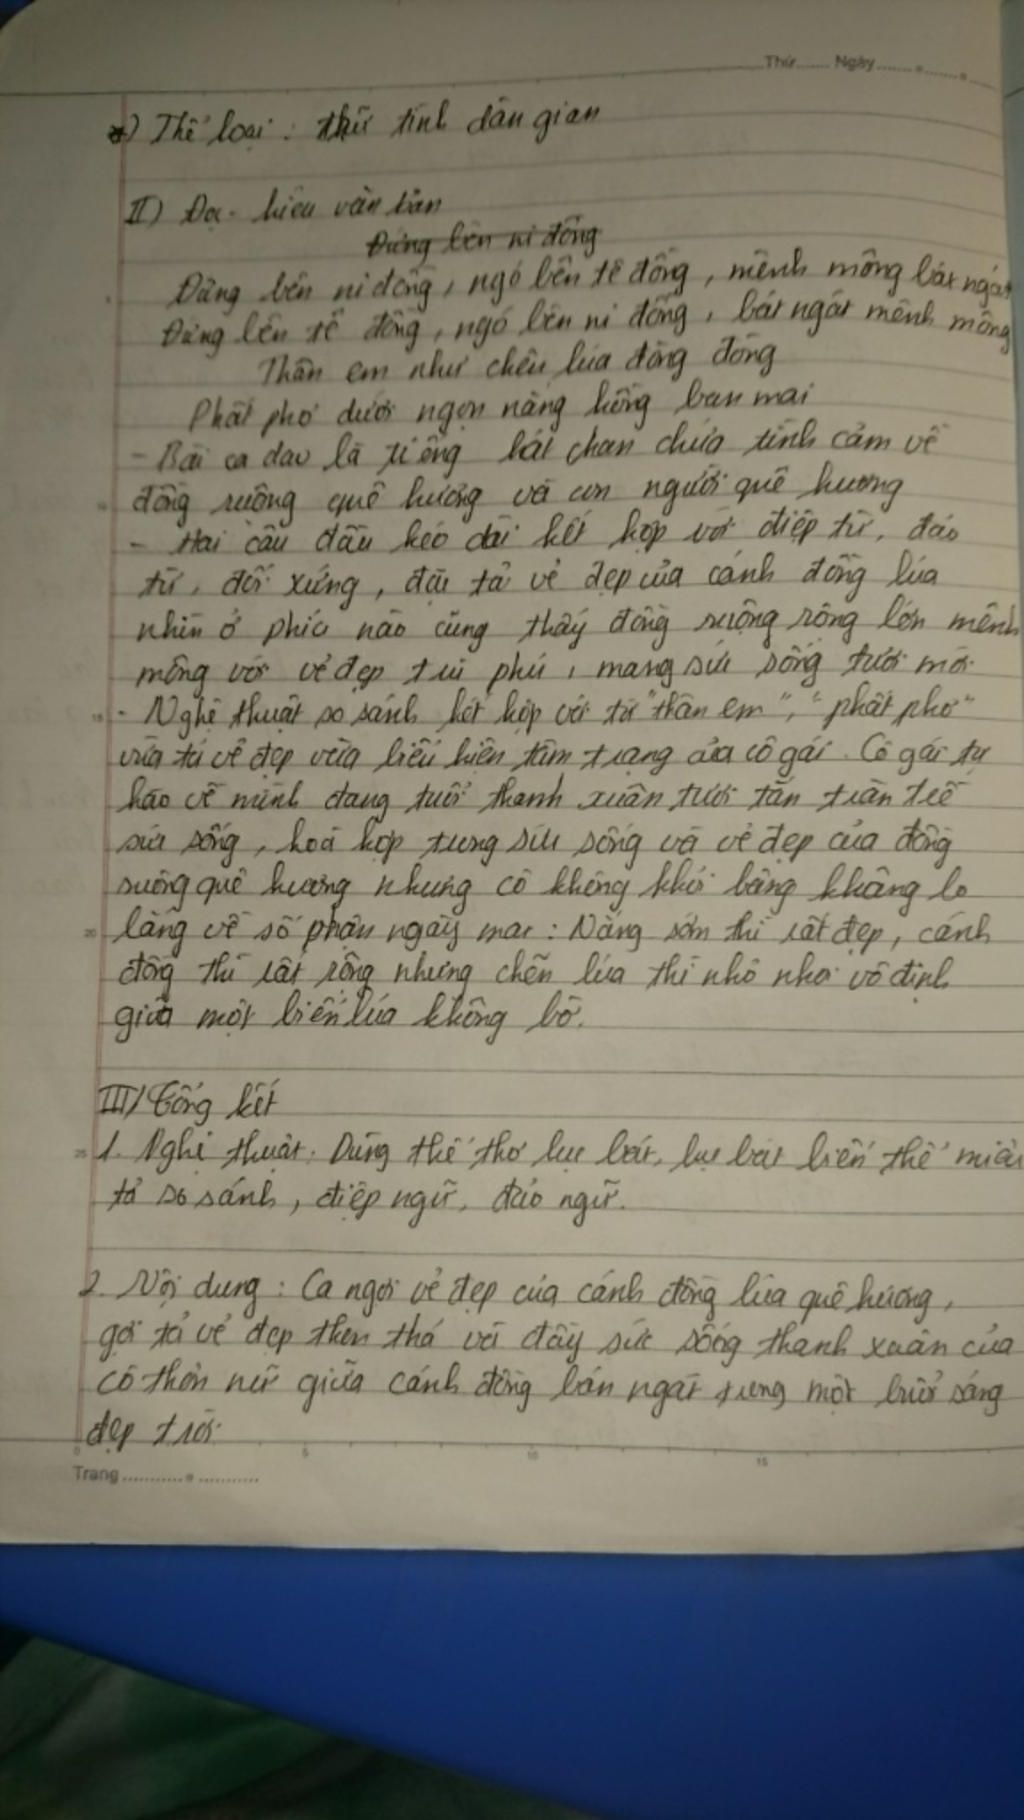 Thứ...... Ngày.............
*) Thể loại : trữ tình dân gian
II) Đọc - hiểu văn bản
Đứng bên ni đồng
Đứng bên ni đồng, ngó bên tê đồng, mênh mông bát ngát
Đứng bên tê đồng, ngó bên ni đồng, bát ngát mênh mông
Thân em như chẽn lúa đòng đòng
Phất phơ dưới ngọn nắng hồng ban mai
- Bài ca dao là tiếng hát chan chứa tình cảm về
đồng ruộng quê hương và con người quê hương
- Hai câu đầu kéo dài kết hợp với điệp từ, đảo
từ, đối xứng, đặc tả vẻ đẹp của cánh đồng lúa
nhìn ở phía nào cũng thấy đồng ruộng rộng lớn mênh
mông với vẻ đẹp trù phú, mang sức sống tươi mới
- Nghệ thuật so sánh kết hợp với từ "thân em", "phất phơ"
vừa tả vẻ đẹp vừa biểu hiện tâm trạng của cô gái. Cô gái tự
hào về mình đang tuổi thanh xuân tươi tắn tràn trề
sức sống, hoà hợp trong sức sống và vẻ đẹp của đồng
ruộng quê hương nhưng cô không khỏi bâng khuâng lo
lắng về số phận ngày mai : Nắng sớm thì rất đẹp, cánh
đồng thì rất rộng nhưng chẽn lúa thì nhỏ nhoi vô định
giữa một biển lúa không bờ.
III) Tổng kết
1. Nghệ thuật. Dùng thể thơ lục bát, lục bát biến thể miêu
tả so sánh, điệp ngữ, đảo ngữ.
2. Nội dung : Ca ngợi vẻ đẹp của cánh đồng lúa quê hương,
gợi tả vẻ đẹp thon thả và đầy sức sống thanh xuân của
cô thôn nữ giữa cánh đồng bát ngát trong một buổi sáng
đẹp trời
Trang......................